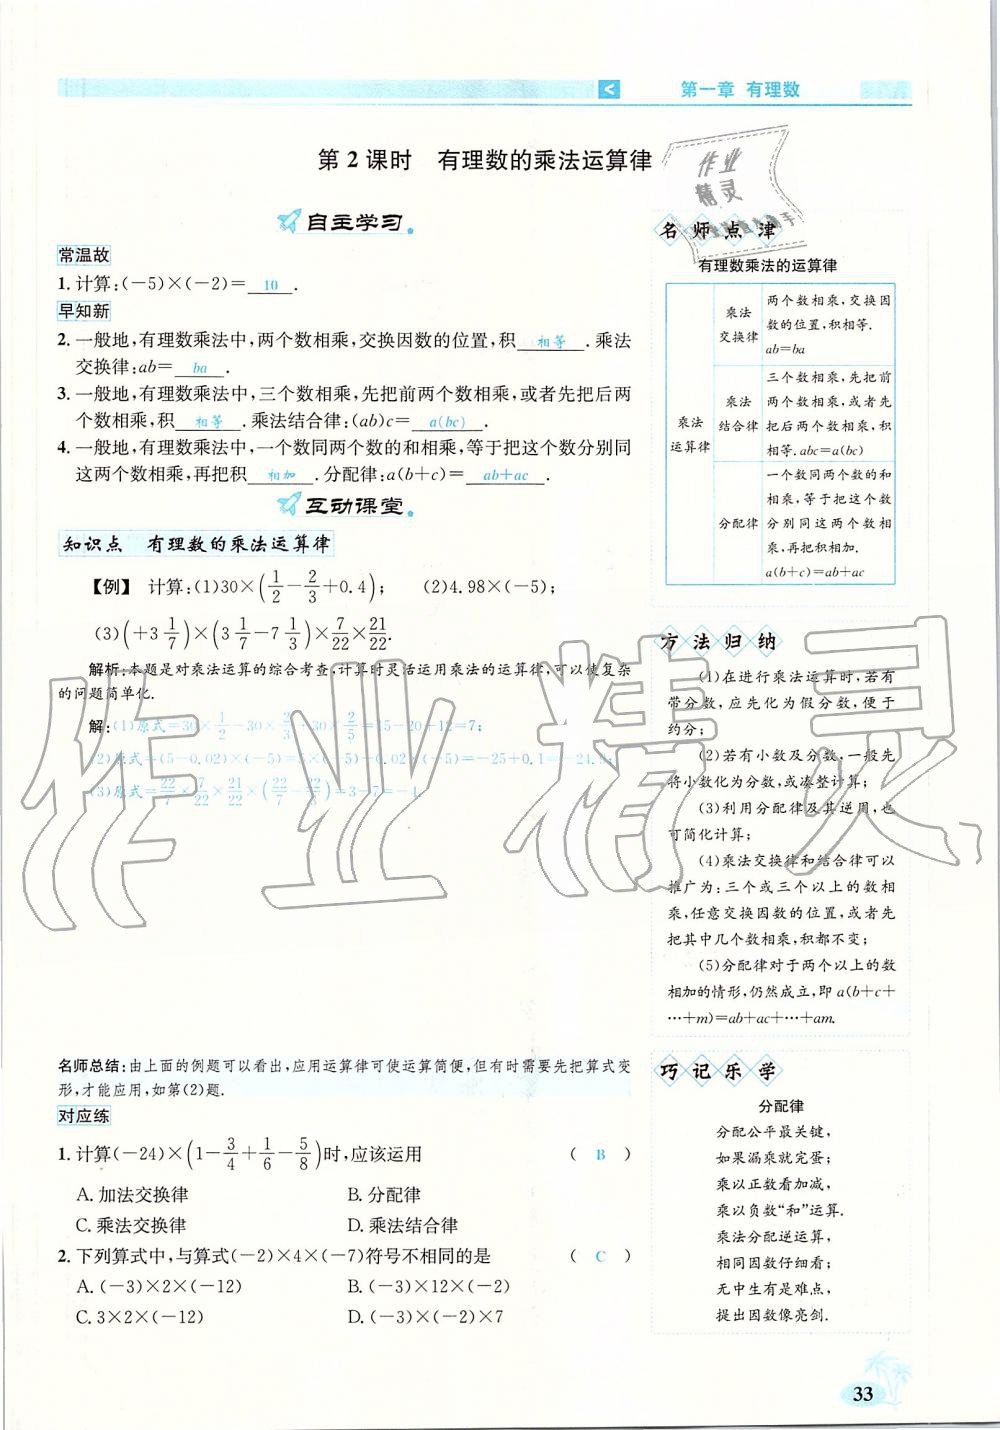 第一章 有理数
第2课时 有理数的乘法运算律
自主学习
常温故
1. 计算:(-5)×(-2)= 10 .
早知新
2. 一般地,有理数乘法中,两个数相乘,交换因数的位置,积 相等 .乘法
交换律:ab= ba .
3. 一般地,有理数乘法中,三个数相乘,先把前两个数相乘,或者先把后两
个数相乘,积 相等 .乘法结合律:(ab)c= a(bc) .
4. 一般地,有理数乘法中,一个数同两个数的和相乘,等于把这个数分别同
这两个数相乘,再把积 相加 .分配律:a(b+c)= ab+ac .
互动课堂
知识点 有理数的乘法运算律
【例】 计算:(1)30×(1/2-2/3+0.4); (2)4.98×(-5);
(3)(+3 1/7)×(3 1/7-7 1/3)×7/22×21/22.
解析:本题是对乘法运算的综合考查,计算时灵活运用乘法的运算律,可以使复杂
的问题简单化.
解:(1)原式=30×1/2-30×2/3+30×2/5=15-20+12=7;
(2)原式=(5-0.02)×(-5)=5×(-5)-0.02×(-5)=-25+0.1=-24.9;
(3)原式=22/7×7/22×21/22×(22/7-22/3)=3-7=-4.
名师总结:由上面的例题可以看出,应用运算律可使运算简便,但有时需要先把算式变
形,才能应用,如第(2)题.
对应练
1. 计算(-24)×(1-3/4+1/6-5/8)时,应该运用 ( B )
A. 加法交换律 B. 分配律
C. 乘法交换律 D. 乘法结合律
2. 下列算式中,与算式(-2)×4×(-7)符号不相同的是 ( C )
A. (-3)×2×(-12) B. (-3)×2×(-12)
C. 3×2×(-12) D. (-3)×(-2)×7
作业
精灵
名师点津
有理数乘法的运算律
乘法
运算律
乘法
交换律
两个数相乘,交换因
数的位置,积相等.
ab=ba
乘法
结合律
三个数相乘,先把前
两个数相乘,或者先
把后两个数相乘,积
相等.abc=a(bc)
分配律
一个数同两个数的和
相乘,等于把这个数
分别同这两个数相
乘,再把积相加.
a(b+c)=ab+ac
方法归纳
(1)在进行乘法运算时,若有
带分数,应先化为假分数,便于
约分;
(2)若有小数及分数,一般先
将小数化为分数,或凑整计算;
(3)利用分配律及其逆用,也
可简化计算;
(4)乘法交换律和结合律可以
推广为:三个或三个以上的数相
乘,任意交换因数的位置,或者先
把其中几个数相乘,积都不变;
(5)分配律对于两个以上的数
相加的情形,仍然成立,即a(b+c+
…+m)=ab+ac+…+am.
巧记乐学
分配律
分配公平最关键,
如果漏乘就完蛋;
乘以正数看加减,
乘以负数“和”运算.
乘法分配逆运算,
相同因数仔细看;
无中生有是难点,
提出因数像亮剑.
33
作业精灵